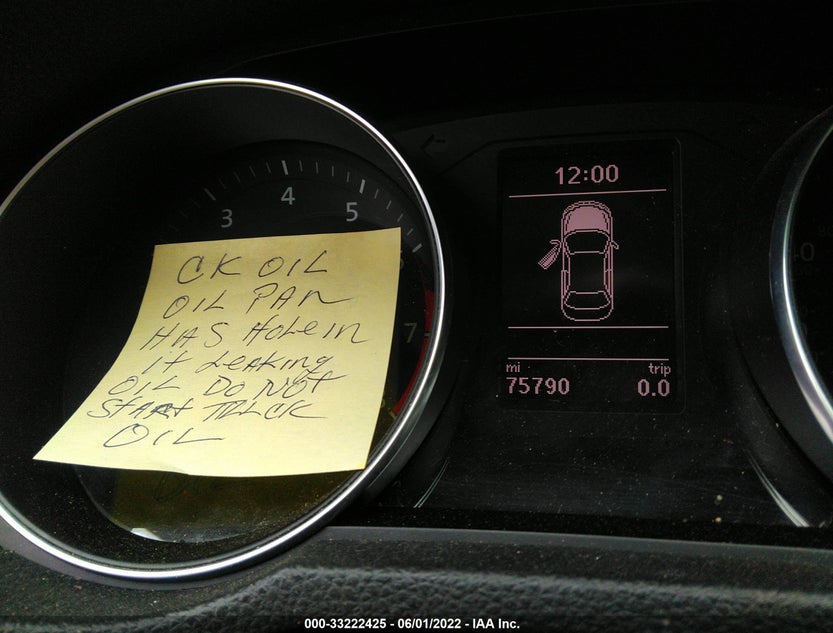 3
4
5
7
12:00
CK OIL
OIL PAN
HAS HOLE IN
IT LEAKING
OIL DO NOT
START TRUCK
OIL
mi trip
75790 0.0
000-33222425 - 06/01/2022 - IAA Inc.